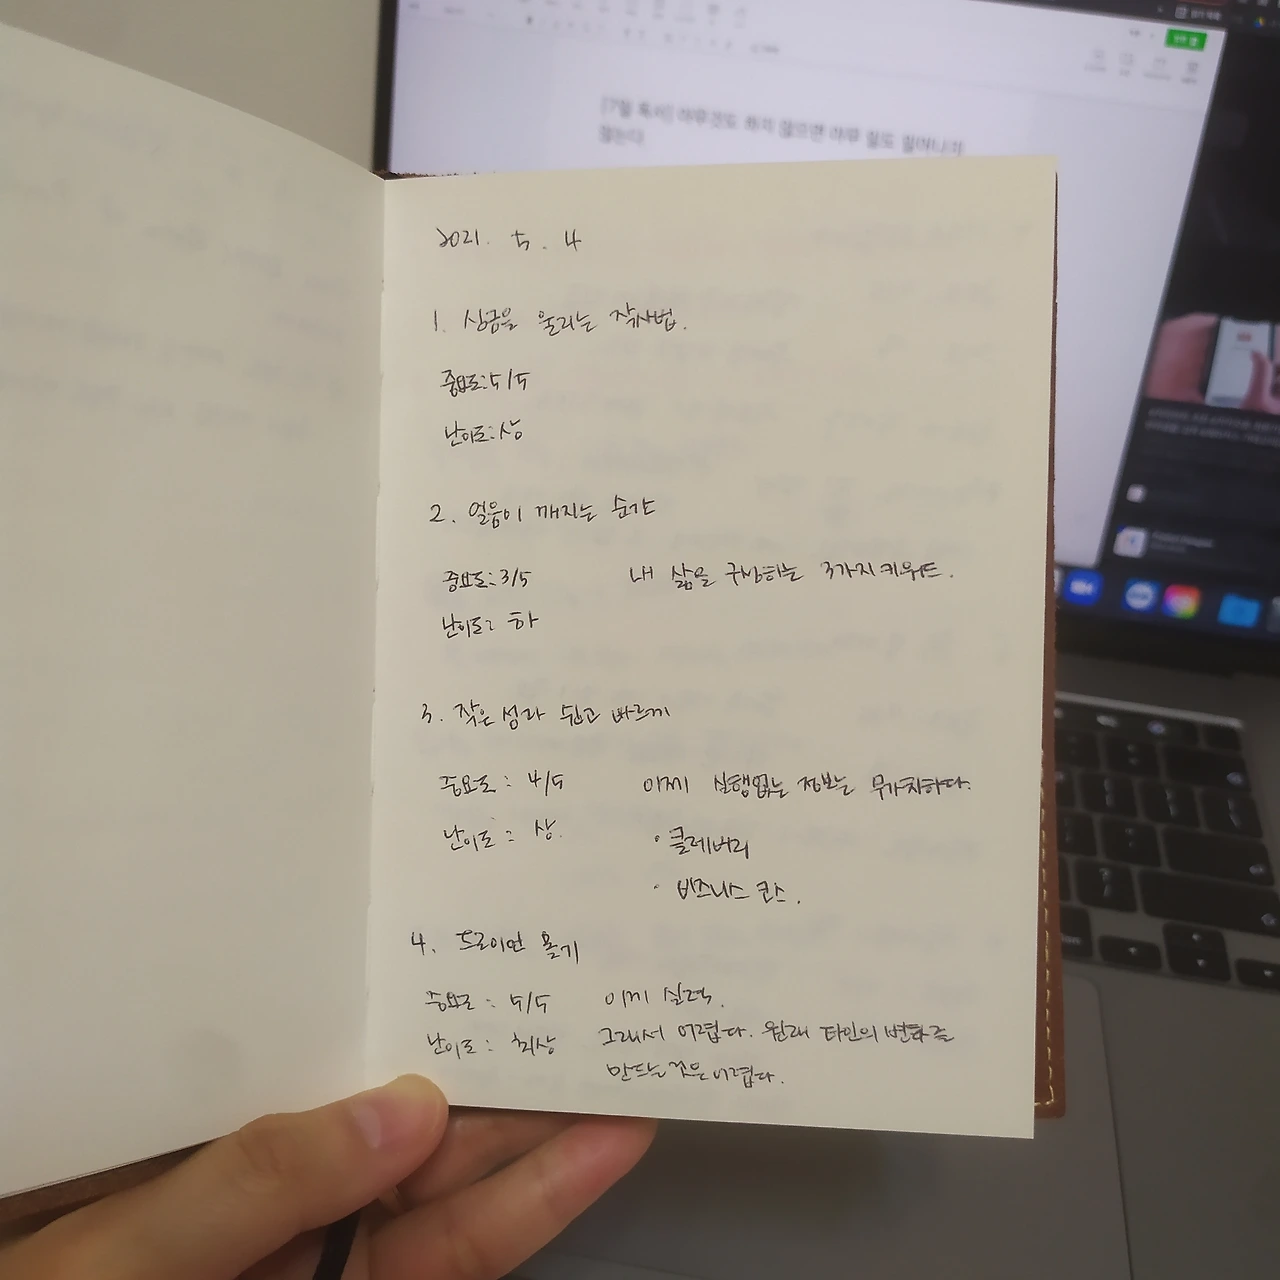 [7일 독서] 아무것도 하지 않으면 아무 일도 일어나지
않는다
2021. 5. 4
1. 심금을 울리는 작사법.
중요도: 5/5
난이도: 상
2. 얼음이 깨지는 순간
중요도: 3/5 내 삶을 구상하는 3가지 키워드.
난이도: 하
3. 작은 성과 쉽고 빠르게
중요도: 4/5 이제 실행없는 정보는 무가치하다.
난이도: 상.
• 클레버리
• 비즈니스 코스.
4. 트로이언 용기
중요도: 5/5 이제 실력.
난이도: 최상 그래서 어렵다. 원래 타인의 변화를
만드는 것은 어렵다.